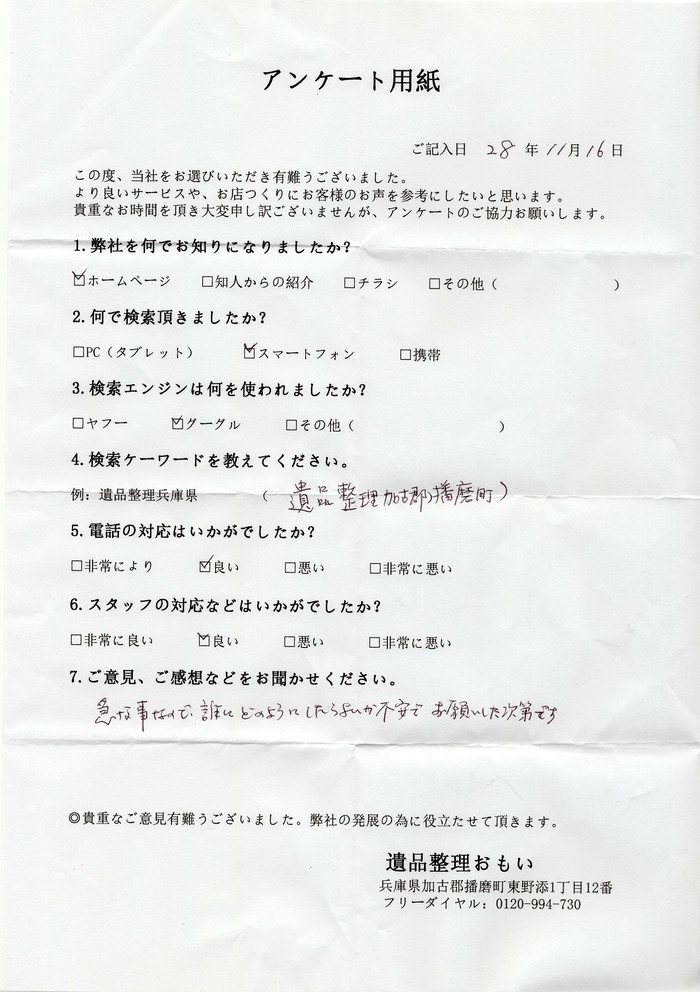 アンケート用紙
ご記入日 28 年 11月 16日
この度、当社をお選びいただき有難うございました。
より良いサービスや、お店つくりにお客様のお声を参考にしたいと思います。
貴重なお時間を頂き大変申し訳ございませんが、アンケートのご協力お願いします。
1.弊社を何でお知りになりましたか?
☑ホームページ □知人からの紹介 □チラシ □その他( )
2.何で検索頂きましたか?
□PC(タブレット) ☑スマートフォン □携帯
3.検索エンジンは何を使われましたか?
□ヤフー ☑グーグル □その他( )
4.検索ケーワードを教えてください。
例: 遺品整理兵庫県 ( 遺品整理 加古郡播磨町 )
5.電話の対応はいかがでしたか?
□非常により ☑良い □悪い □非常に悪い
6.スタッフの対応などはいかがでしたか?
□非常に良い ☑良い □悪い □非常に悪い
7.ご意見、ご感想などをお聞かせください。
急な事なので、誰にどのようにしたらよいか不安でお願いした次第です
◎貴重なご意見有難うございました。弊社の発展の為に役立たせて頂きます。
遺品整理おもい
兵庫県加古郡播磨町東野添1丁目12番
フリーダイヤル: 0120-994-730